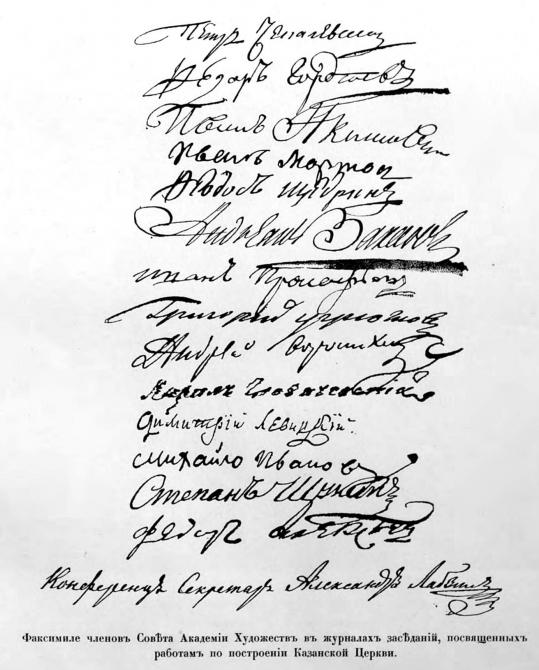 Петръ Чекалевский
Ѳедоръ Гордѣевъ
Иванъ Акимовъ
Иванъ Мартос
Ѳедосъ Щедринъ
Андреянъ Захаровъ
Иванъ Прокофьевъ
Григорий Угрюмовъ
Андрей Воронихинъ
Кирилъ Головачевскій
Димитрій Левицкій.
Михайло Ивановъ
Степанъ Щукинъ
Федоръ
Конференцъ Секретарь Александръ Лабзинъ
Факсимиле членовъ Совѣта Академіи Художествъ въ журналахъ засѣданій, посвященныхъ
работамъ по построеніи Казанской Церкви.